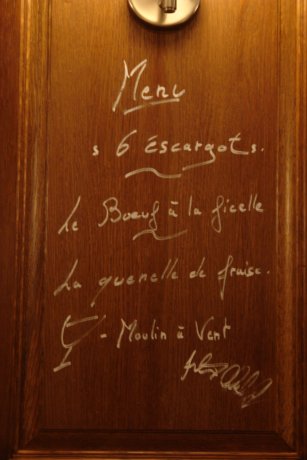 Menu
s 6 Escargots.
Le Boeuf à la ficelle
La quenelle de fraise.
- Moulin à Vent